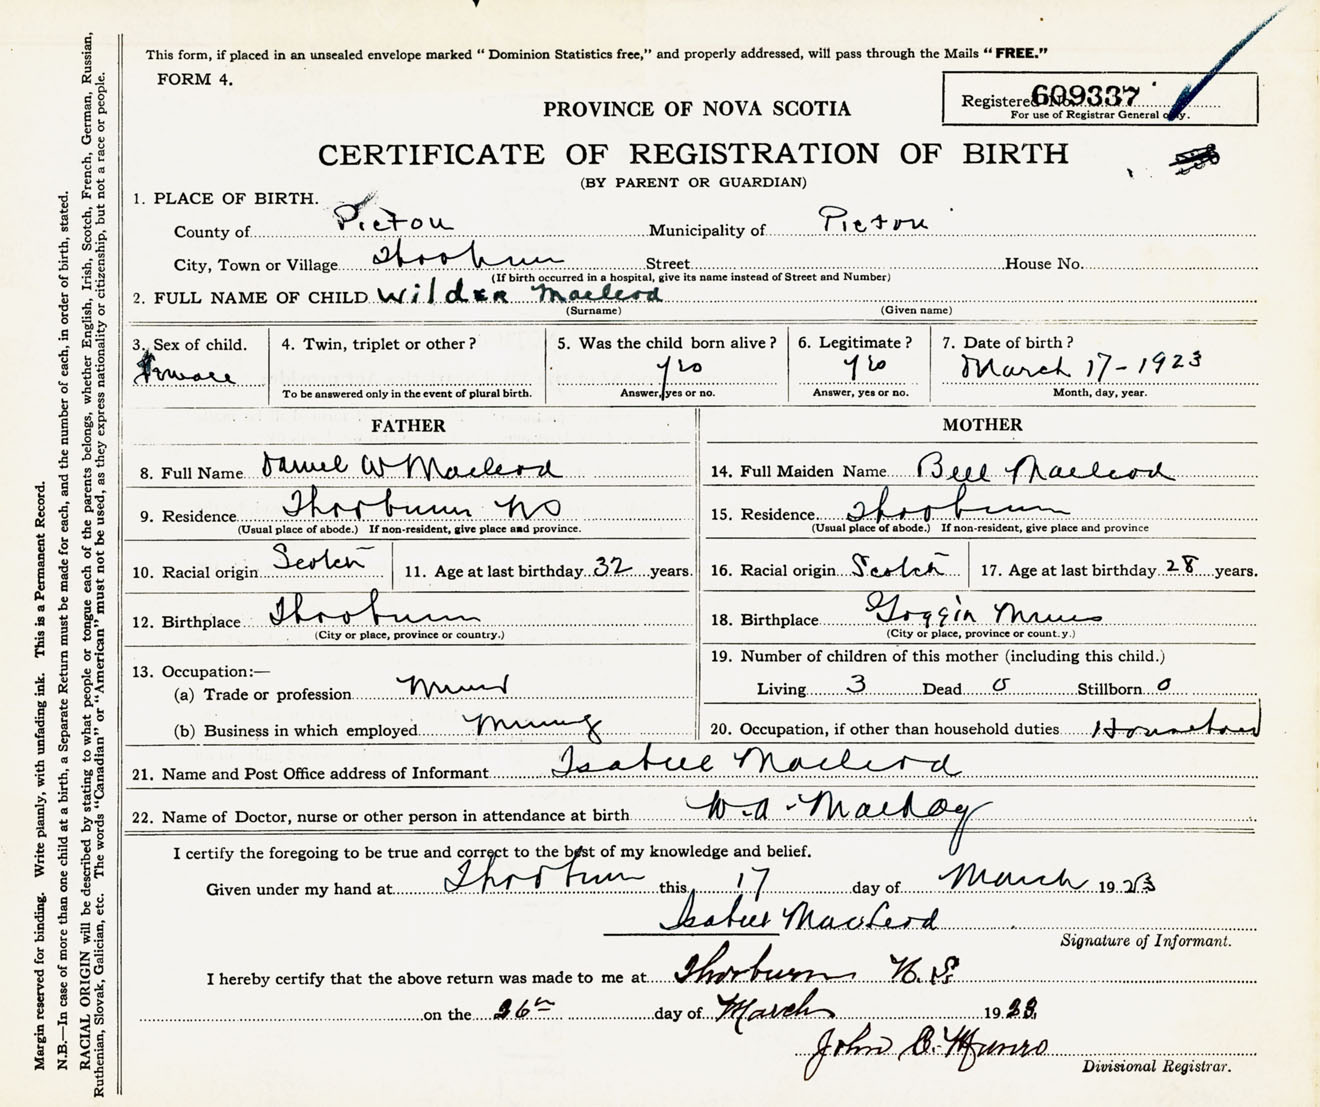 This form, if placed in an unsealed envelope marked "Dominion Statistics free," and properly addressed, will pass through the Mails "FREE."
FORM 4.
PROVINCE OF NOVA SCOTIA
Registered No. 609337
For use of Registrar General only.
CERTIFICATE OF REGISTRATION OF BIRTH
(BY PARENT OR GUARDIAN)
1. PLACE OF BIRTH.
County of Pictou Municipality of Pictou
City, Town or Village Thorburn Street House No.
(If birth occurred in a hospital, give its name instead of Street and Number)
2. FULL NAME OF CHILD Wilder Macleod
(Surname) (Given name)
3. Sex of child. 4. Twin, triplet or other? 5. Was the child born alive? 6. Legitimate? 7. Date of birth?
yes yes March 17-1923
To be answered only in the event of plural birth. Answer, yes or no. Answer, yes or no. Month, day, year.
FATHER MOTHER
8. Full Name Daniel W Macleod 14. Full Maiden Name Bell Macleod
9. Residence Thorburn NS 15. Residence Thorburn
(Usual place of abode.) If non-resident, give place and province. (Usual place of abode.) If non-resident, give place and province
10. Racial origin Scotch 11. Age at last birthday 32 years. 16. Racial origin Scotch 17. Age at last birthday 28 years.
12. Birthplace Thorburn 18. Birthplace Goggin Mines
(City or place, province or country.) (City or place, province or count.y.)
13. Occupation:— 19. Number of children of this mother (including this child.)
(a) Trade or profession Miner Living 3 Dead 0 Stillborn 0
(b) Business in which employed Mining 20. Occupation, if other than household duties
21. Name and Post Office address of Informant Isabell Macleod
22. Name of Doctor, nurse or other person in attendance at birth W.A. MacKay
I certify the foregoing to be true and correct to the best of my knowledge and belief.
Given under my hand at Thorburn this 17 day of March 1923
Isabell MacLeod
Signature of Informant.
I hereby certify that the above return was made to me at Thorburn N.S
on the 26th day of March 1923
John C. Munro
Divisional Registrar.
Margin reserved for binding. Write plainly, with unfading ink. This is a Permanent Record.
N.B.—In case of more than one child at a birth, a Separate Return must be made for each, and the number of each, in order of birth, stated.
RACIAL ORIGIN will be described by stating to what people or tongue each of the parents belongs, whether English, Irish, Scotch, French, German, Russian,
Ruthenian, Slovak, Galician, etc. The words "Canadian" or "American" must not be used, as they express nationality or citizenship, but not a race or people.